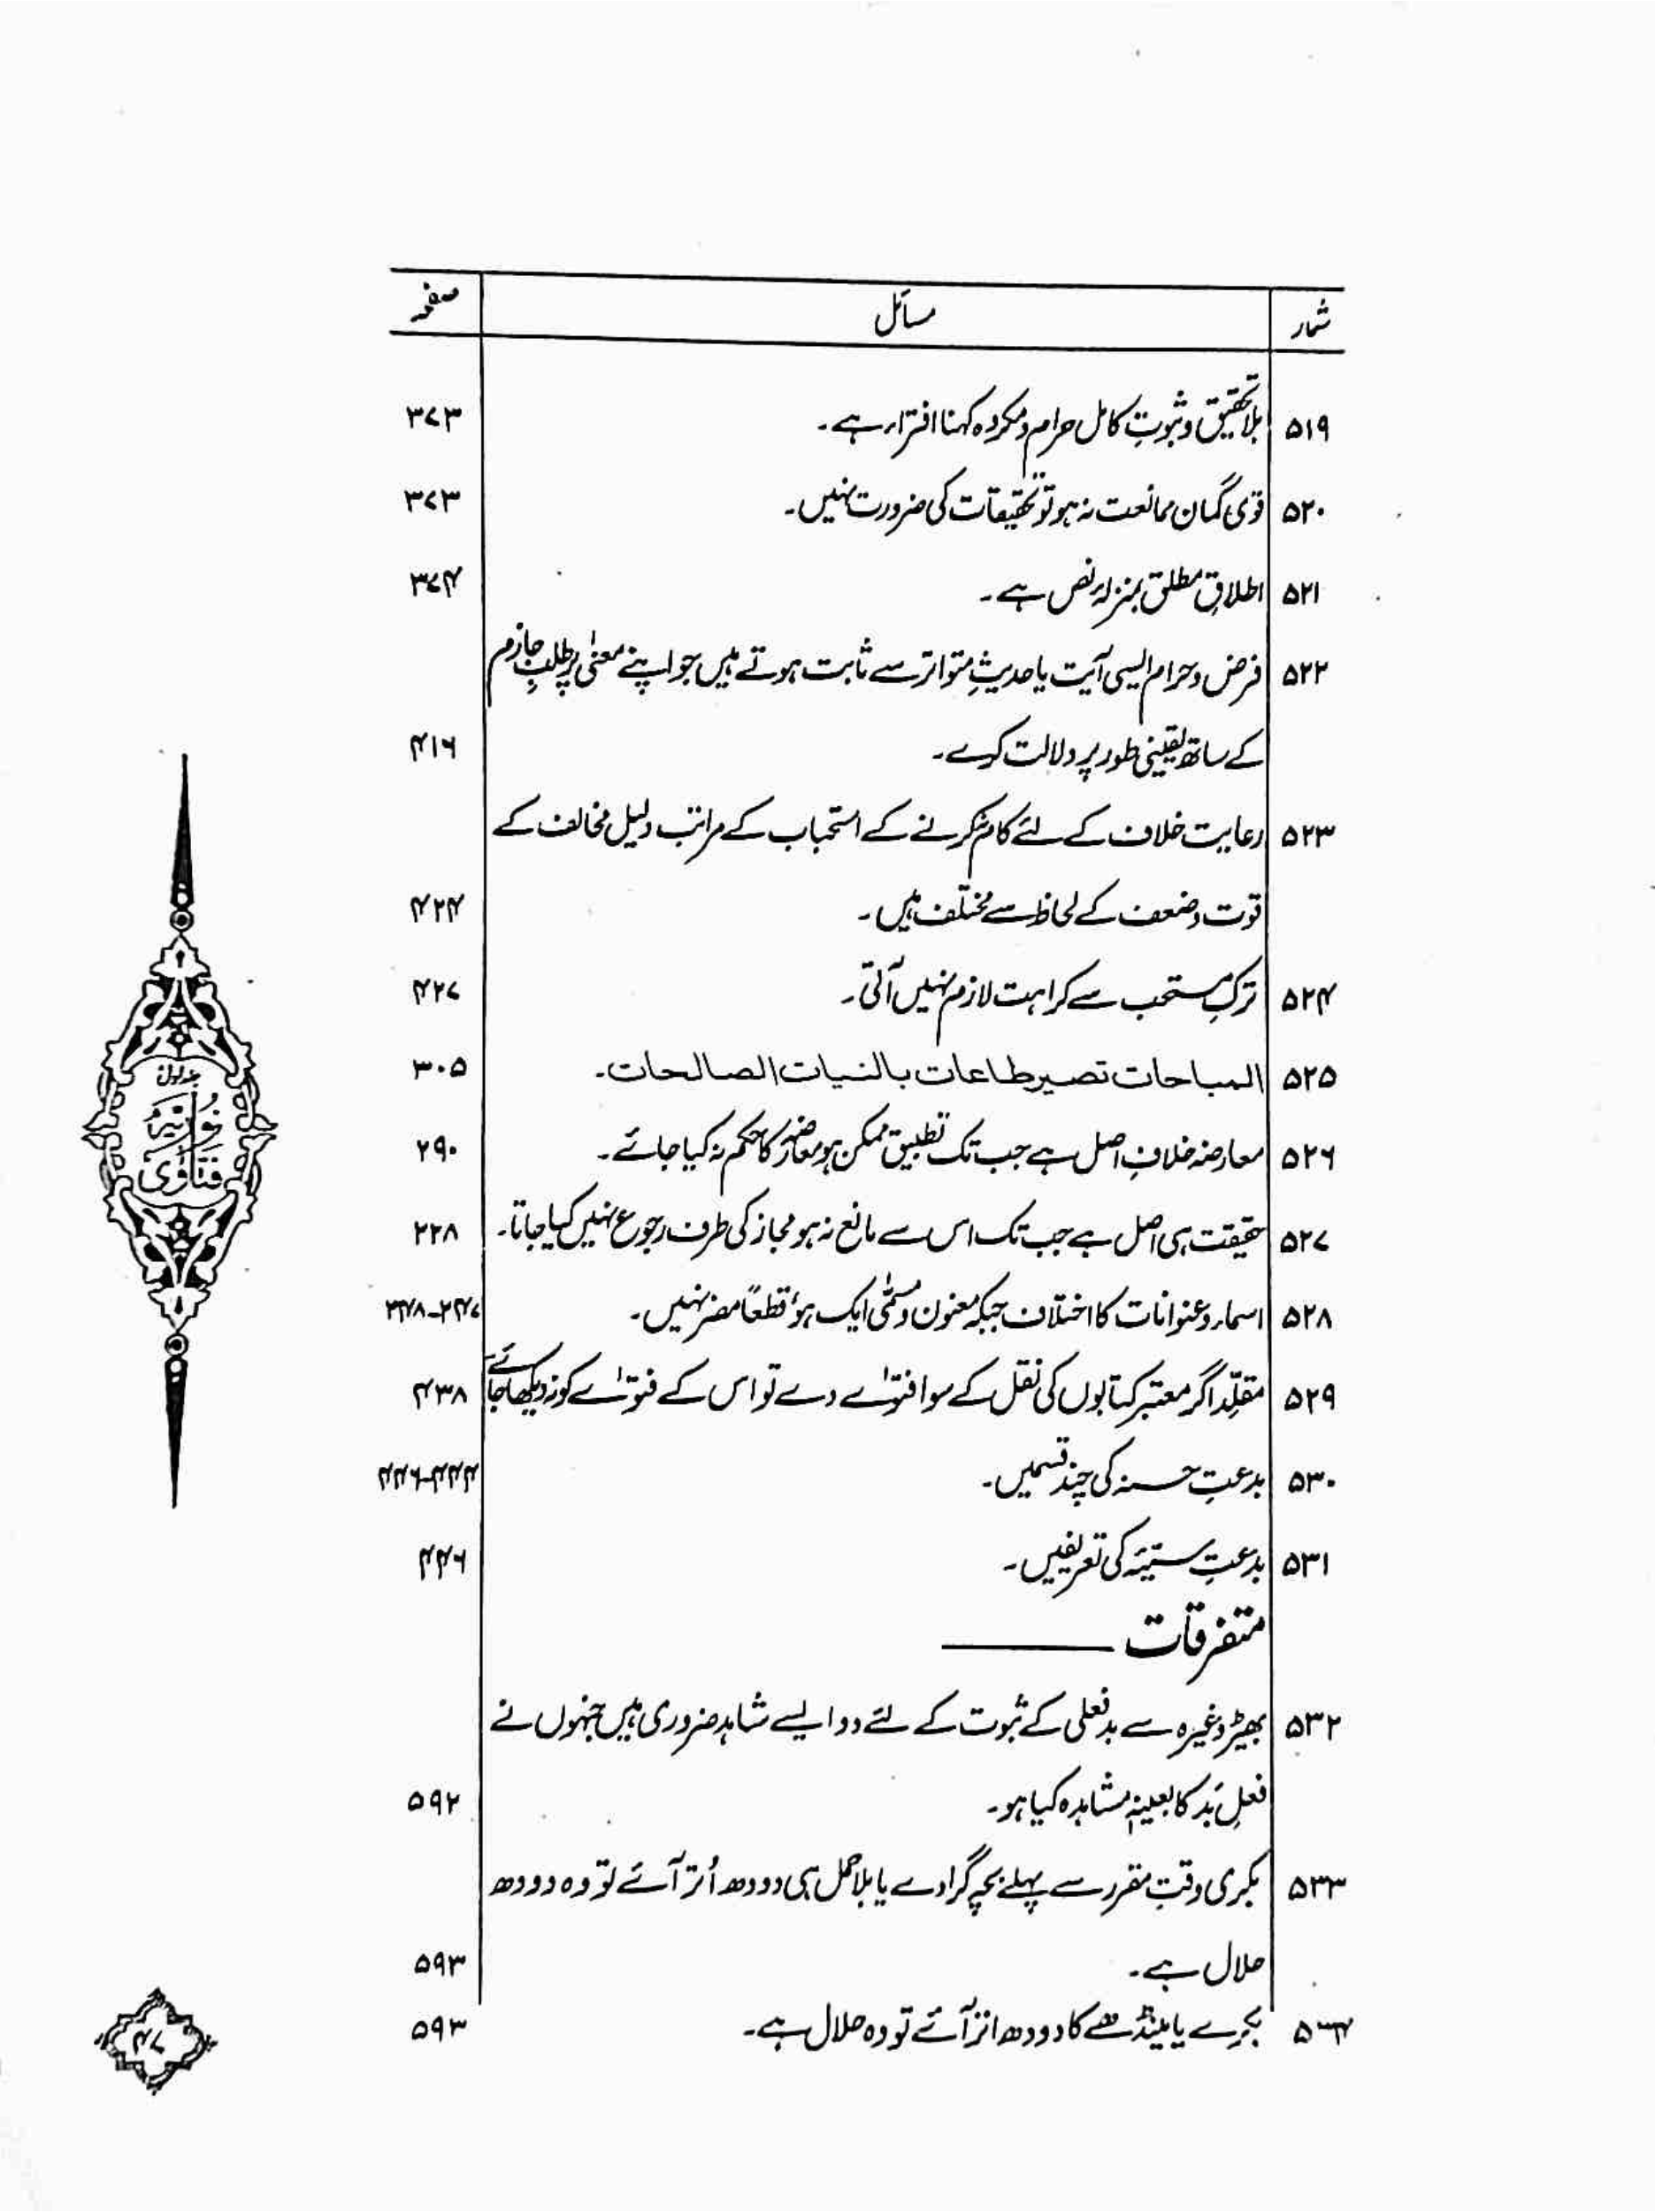 شمار مسائل صفحہ
۵۱۹ بلا تحقیق و ثبوتِ کامل حرام و مکروہ کہنا افتراء ہے۔ ۳۷۳
۵۲۰ قوی گمان ممانعت نہ ہو تو تحقیقات کی ضرورت نہیں۔ ۳۷۳
۵۲۱ اطلاقِ مطلق بمنزلہ نص ہے۔ ۳۷۴
۵۲۲ فرض و حرام ایسی آیت یا حدیثِ متواتر سے ثابت ہوتے ہیں جو اپنے معنیٰ پر طلبِ جازم
کے ساتھ یقینی طور پر دلالت کرے۔ ۴۱۶
۵۲۳ رعایت خلاف کے لئے کام نہ کرنے کے استحباب کے مراتب دلیل مخالف کے
قوت و ضعف کے لحاظ سے مختلف ہیں۔ ۴۲۴
۵۲۴ ترکِ مستحب سے کراہت لازم نہیں آتی۔ ۴۲۷
۵۲۵ المباحات تصیر طاعات بالنیات الصالحات۔ ۳۰۵
۵۲۶ معارضہ خلافِ اصل ہے جب تک تطبیق ممکن ہو معارضہ کا حکم نہ کیا جائے۔ ۲۹۰
۵۲۷ حقیقت ہی اصل ہے جب تک اس سے مانع نہ ہو مجاز کی طرف رجوع نہیں کیا جاتا۔ ۲۲۸
۵۲۸ اسماء و عنوانات کا اختلاف جبکہ معنون و مسمّٰی ایک ہو، قطعاً مضر نہیں۔ ۳۴۷-۳۴۸
۵۲۹ مقلّد اگر معتبر کتابوں کی نقل کے سوا فتوٰے دے تو اس کے فتوٰے کو نہ دیکھا جائے ۴۳۸
۵۳۰ بدعتِ حسنہ کی چند قسمیں۔ ۴۴۴-۴۴۶
۵۳۱ بدعتِ سیّئہ کی تعریفیں۔ ۴۴۶
متفرقات
۵۳۲ بھیڑ وغیرہ سے بدفعلی کے ثبوت کے لئے دو ایسے شاہد ضروری ہیں جنہوں نے
فعلِ بَد کا بعینہٖ مشاہدہ کیا ہو۔ ۵۹۲
۵۳۳ بکری وقتِ مقرر سے پہلے بچہ گرا دے یا بلا حمل ہی دودھ اُتر آئے تو وہ دودھ
حلال ہے۔ ۵۹۳
۵۳۴ بکرے یا مینڈھے کا دودھ اتر آئے تو وہ حلال ہے۔ ۵۹۳
فتاوٰی
نوریہ
۴۷